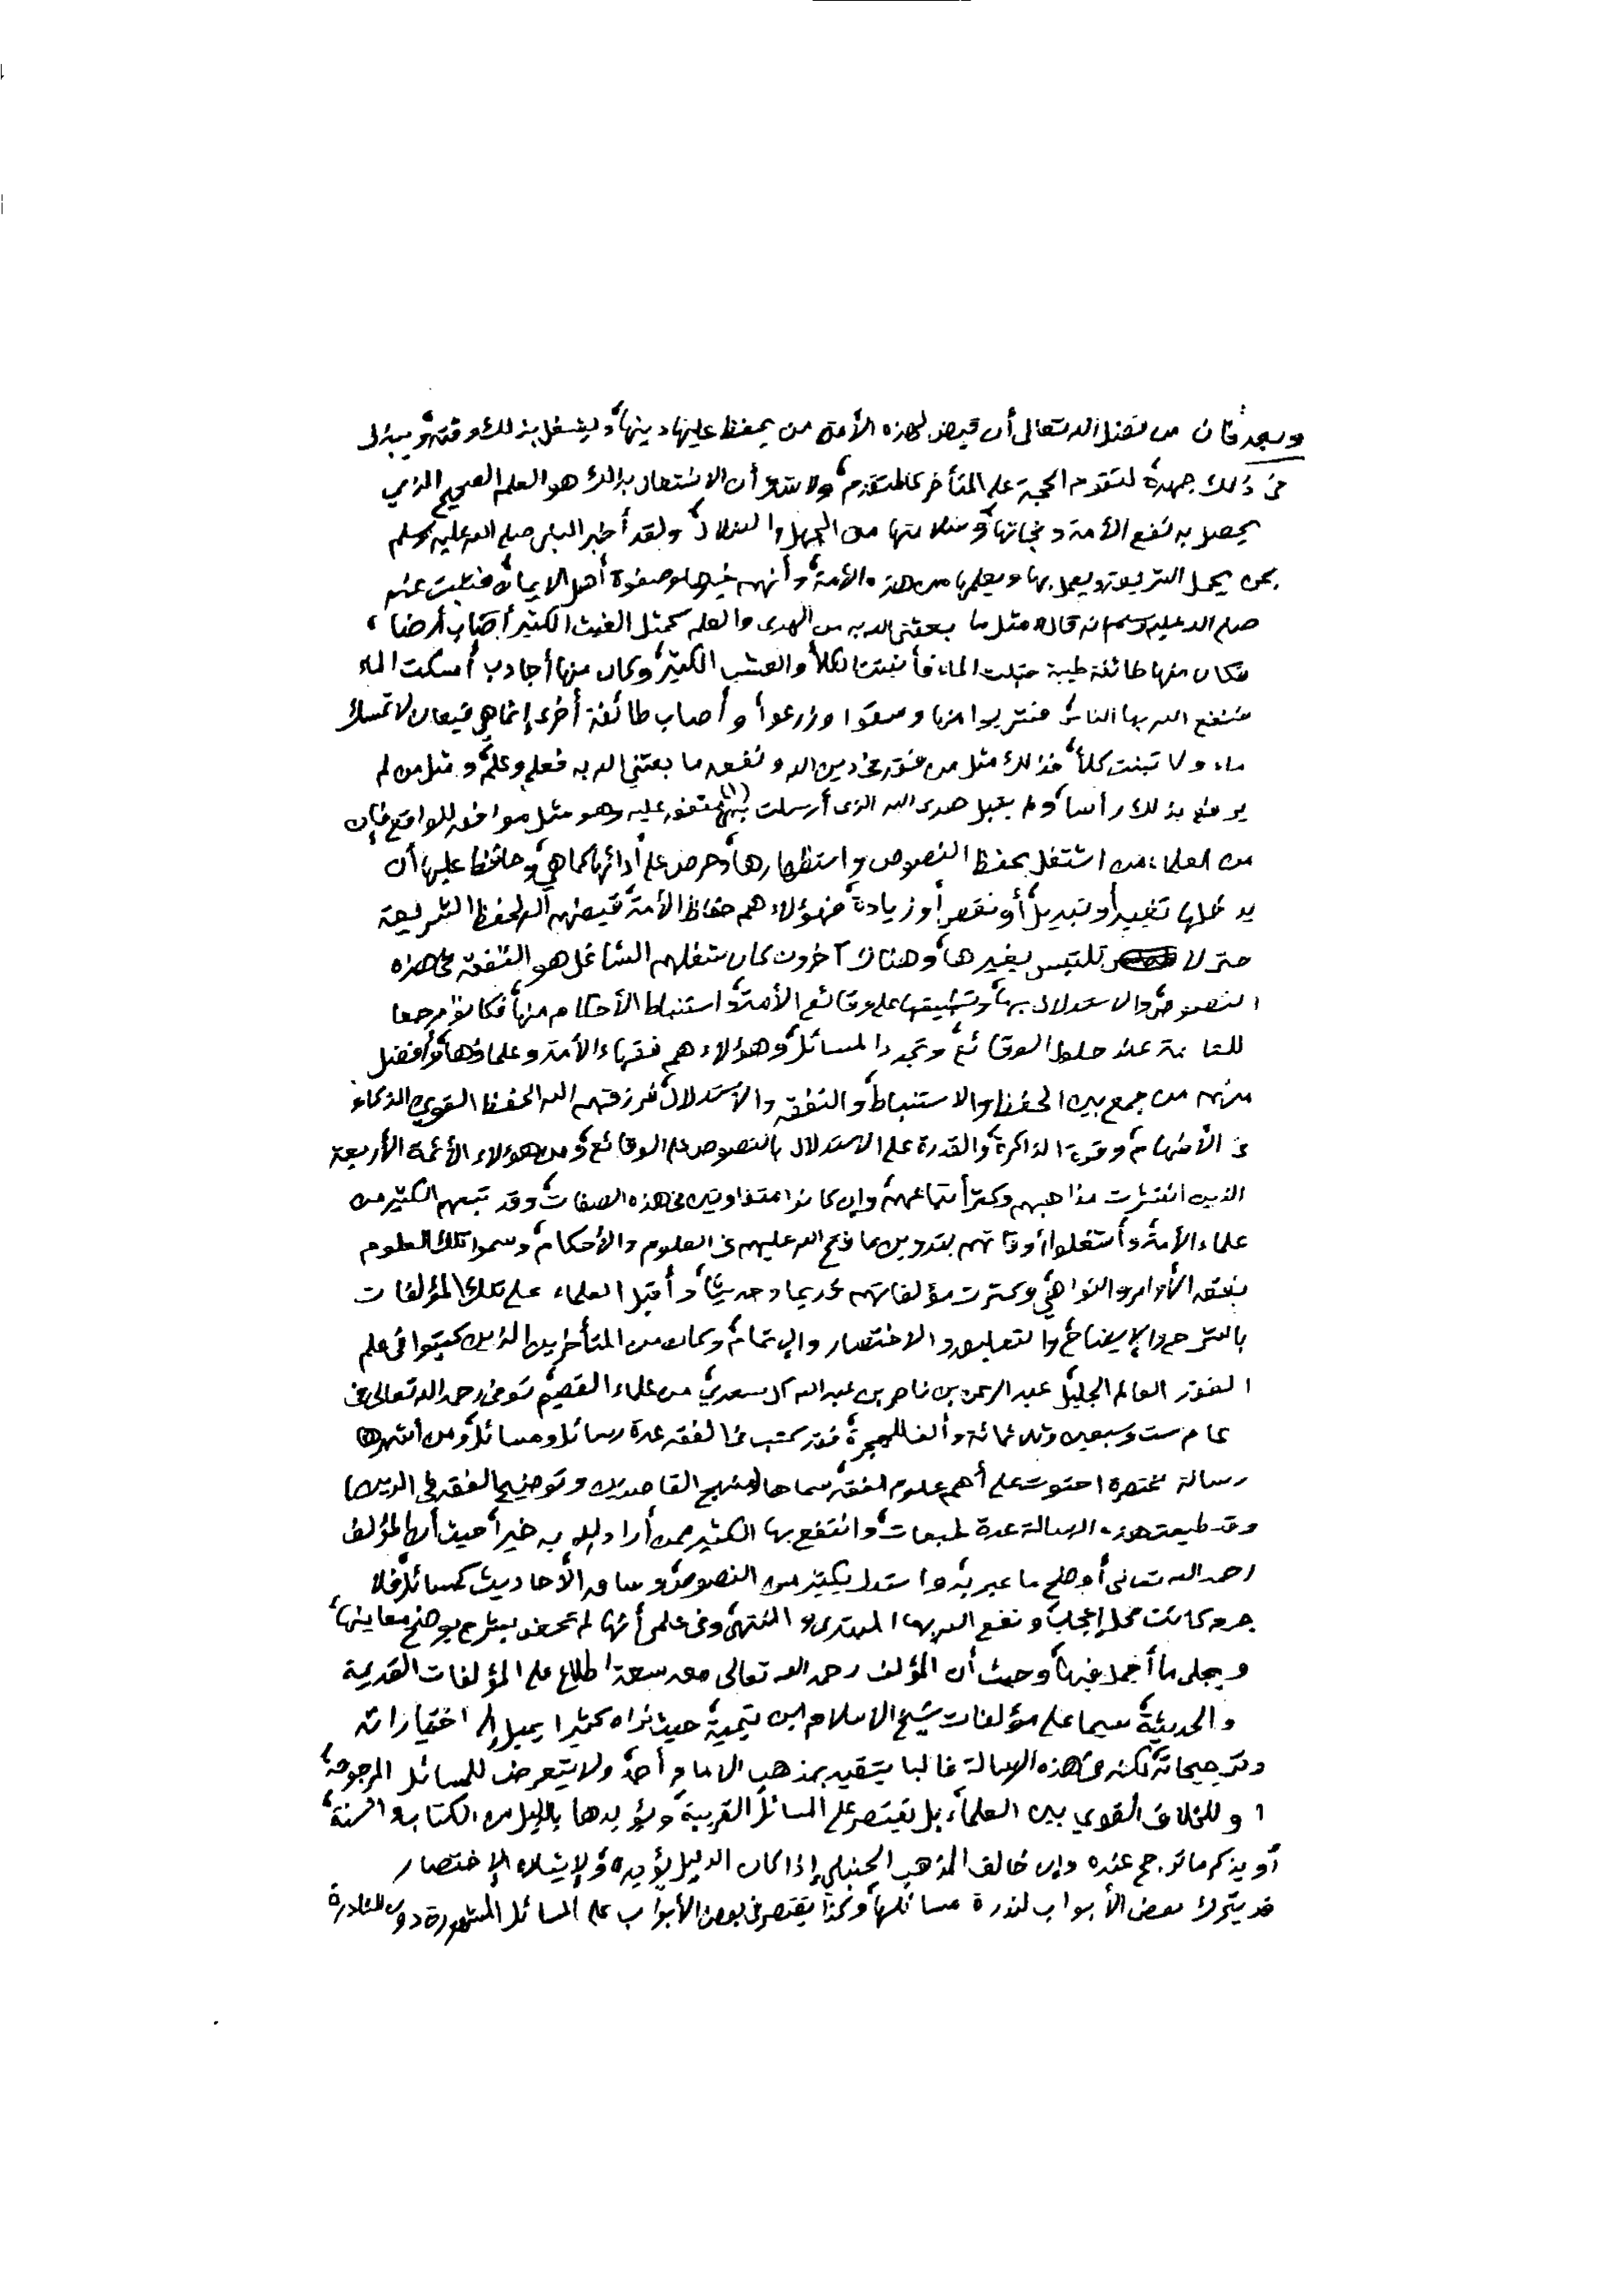 وبعد فإن من فضل الله تعالى أن قيض لهذه الأمة من يحفظ عليها دينها، ويشغل بذلك وقته، ويبذل
في ذلك جهده، لتقوم الحجة على المتأخر كالمتقدم، ولا شك أن الاشتغال بذلك هو العلم الصحيح الذي
يحصل به نفع الأمة ونجاتها، وسلامتها من الجهل والضلال، ولقد أخبر النبي صلى الله عليه وسلم
بمن يحمل الشريعة ويعمل بها ويعلمها من هذه الأمة، وأنهم خيرها وصفوة أهل الإيمان، فثبت عنه
صلى الله عليه وسلم أنه قال: مثل ما بعثني الله به من الهدى والعلم كمثل الغيث الكثير أصاب أرضا،
فكان منها طائفة طيبة قبلت الماء فأنبتت الكلأ والعشب الكثير، وكان منها أجادب أمسكت الماء
فنفع الله بها الناس، فشربوا منها وسقوا وزرعوا، وأصاب طائفة أخرى إنما هي قيعان لا تمسك
ماء ولا تنبت كلأ، فذلك مثل من فقه في دين الله ونفعه ما بعثني الله به فعلم وعلّم، ومثل من لم
يرفع بذلك رأسا، ولم يقبل هدى الله الذي أرسلت به(١) متفق عليه وهو مثل موافق للواقع، فإن
من العلماء من اشتغل بحفظ النصوص واستظهارها، وحرص على أدائها كما هي، وحافظ عليها أن
يدخلها تغيير أو تبديل، أو نقص أو زيادة، فهؤلاء هم حفاظ الأمة، قيضهم الله لحفظ الشريعة
حتى لا تلتبس بغيرها، وهناك آخرون كان شغلهم الشاغل هو التفقه في هذه
النصوص، والاستدلال بها، وتطبيقها على وقائع الأمة، واستنباط الأحكام منها، فكانوا مرجعا
للعامة عند حلول الوقائع، وتجدد المسائل، وهؤلاء هم فقهاء الأمة وعلماؤها، وأفضل
منهم من جمع بين الحفظ والاستنباط، والتفقه والاستدلال، فرزقهم الله الحفظ القوي، والذكاء
في الأفهام، وقوة الذاكرة، والقدرة على الاستدلال بالنصوص على الوقائع، ومن هؤلاء الأئمة الأربعة
الذين انتشرت مذاهبهم وكثر أتباعهم، وإن كانوا متفاوتين في هذه الصفات، وقد تبعهم الكثير من
علماء الأمة، وأشغلوا أوقاتهم بتدوين ما فتح الله عليهم في العلوم والأحكام، وسموا تلك العلوم
بفقه الأوامر والنواهي، وكثرت مؤلفاتهم قديما وحديثا، وأقبل العلماء على تلك المؤلفات
بالشرح والإيضاح، والتعليق، والاختصار والإتمام، وكان من المتأخرين الذين كتبوا في علم
الفقه العالم الجليل عبد الرحمن بن ناصر بن عبد الله آل سعدي، من علماء القصيم، توفي رحمه الله تعالى في
عام ست وسبعين وثلاثمائة وألف للهجرة، فقد كتب في الفقه عدة رسائل ومسائل، ومن أشهرها
رسالة مختصرة احتوت على أهم علوم الفقه، سماها (منهج القاصدين وتوضيح الفقه في الدين)
وقد طبعت هذه الرسالة عدة طبعات، وانتفع بها الكثير ممن أراد الله به خيرا، حيث أن المؤلف
رحمه الله تعالى أوضح ما عبر به، واستدل بكثير من النصوص، وساق الأحاديث كمسائل، فلا
جرم كانت محل إعجاب، ونفع الله بها المبتدئ والمنتهي، وفي علمي أنها لم تحظ بشرح يوضح معانيها،
ويجلي ما أجمل فيها، وحيث أن المؤلف رحمه الله تعالى معه سعة اطلاع على المؤلفات القديمة
والحديثة، سيما على مؤلفات شيخ الإسلام ابن تيمية، حيث نراه كثيرا يميل إلى اختياراته
وترجيحاته، لكنه في هذه الرسالة غالبا يتقيد بمذهب الإمام أحمد، ولا يتعرض للمسائل المرجوحة،
أو للخلاف القوي بين العلماء، بل يقتصر على المسائل القريبة، ويؤيدها بالدليل من الكتاب والسنة،
أو يذكر ما ترجح عنده وإن خالف المذهب الحنبلي، إذا كان الدليل يؤيده، ولإيثاره الاختصار
قد يترك بعض الأبواب لندرة مسائلها، وكذا يقتصر في بعض الأبواب على المسائل المشهورة دون النادرة